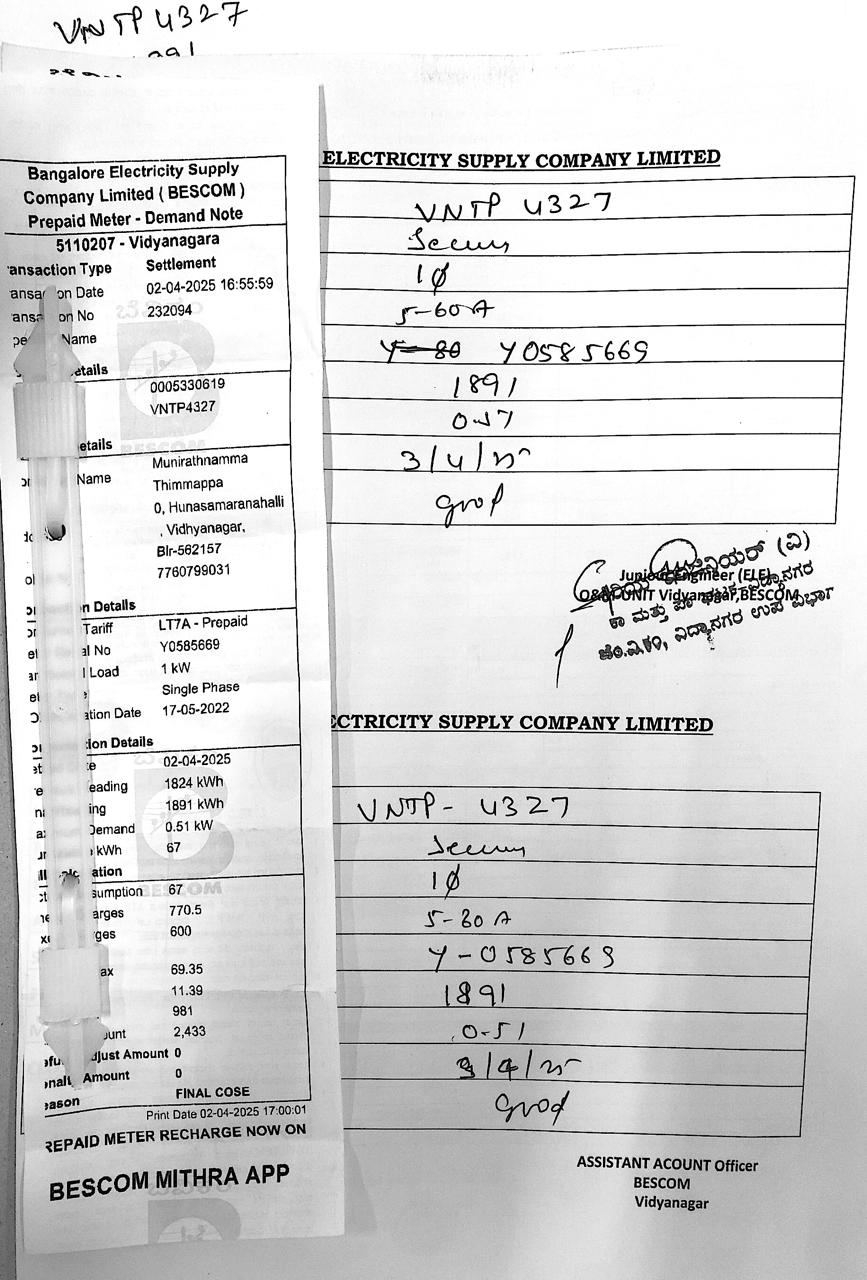 VNTP 4327
Bangalore Electricity Supply
Company Limited ( BESCOM )
Prepaid Meter - Demand Note
5110207 - Vidyanagara
ansaction Type Settlement
ansac on Date 02-04-2025 16:55:59
ansa on No 232094
pe Name
etails
0005330619
VNTP4327
etails
Name Munirathnamma
Thimmappa
0, Hunasamaranahalli
, Vidhyanagar,
Blr-562157
7760799031
n Details
Tariff LT7A - Prepaid
al No Y0585669
Load 1 kW
Single Phase
ation Date 17-05-2022
ion Details
te 02-04-2025
eading 1824 kWh
ing 1891 kWh
Demand 0.51 kW
kWh 67
ation
sumption 67
arges 770.5
ges 600
ax 69.35
11.39
981
unt 2,433
efu djust Amount 0
enalt Amount 0
eason FINAL COSE
Print Date 02-04-2025 17:00:01
REPAID METER RECHARGE NOW ON
BESCOM MITHRA APP
BESCOM
ELECTRICITY SUPPLY COMPANY LIMITED
VNTP 4327
1φ
5-60A
Y0585669
1891
3/4/25
good
Junior Engineer (ELE)
O&M UNIT Vidyanagar,BESCOM
ಕಾ ಮತ್ತು ಪಾ ಘಟಕ, ವಿದ್ಯಾನಗರ
ಬೆಂ.ವಿ.ಕಂ, ವಿದ್ಯಾನಗರ ಉಪ ವಿಭಾಗ
ECTRICITY SUPPLY COMPANY LIMITED
VNTP- 4327
1φ
Y-0585669
1891
0-51
3/4/25
good
ASSISTANT ACOUNT Officer
BESCOM
Vidyanagar